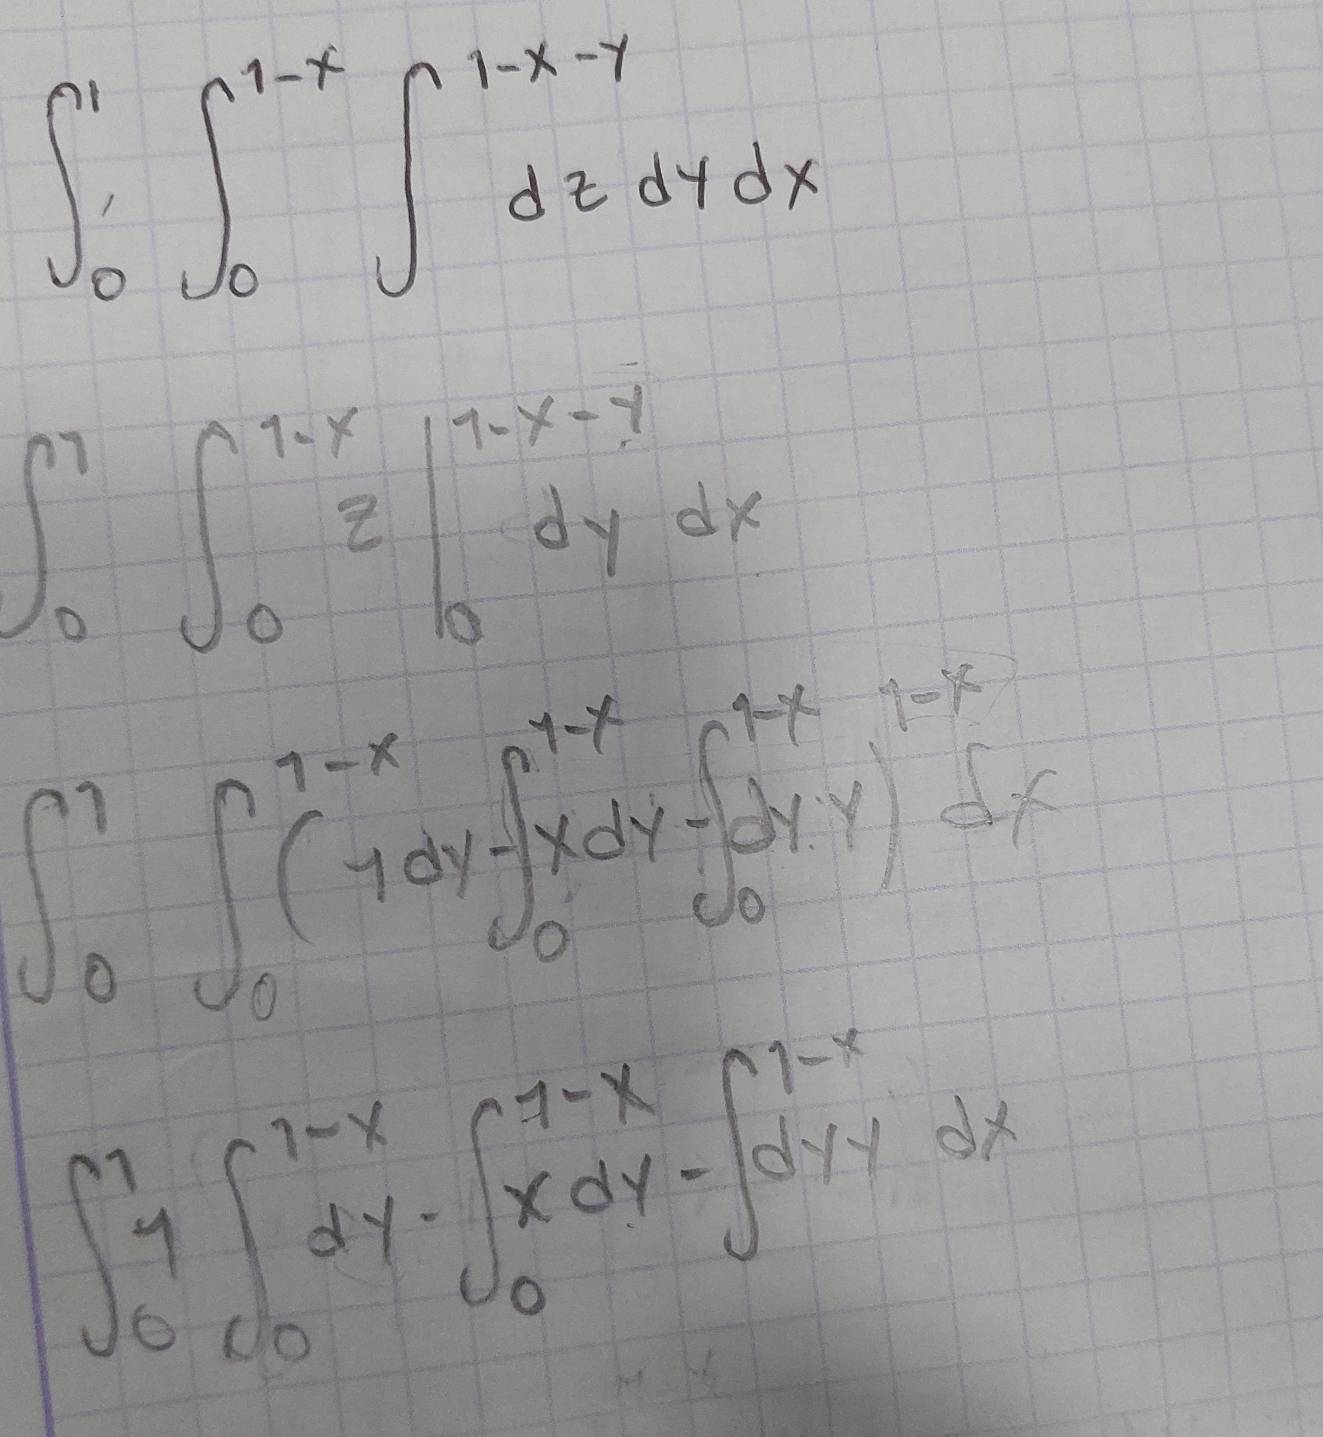 ∫₀¹ ∫₀^(1-x) ∫^(1-x-y) dz dy dx
∫₀¹ ∫₀^(1-x) z |₀^(1-x-y) dy dx
∫₀¹ ∫₀^(1-x) (1dy - ∫₀^(1-x) xdy - ∫₀^(1-x) dy y)^(1-x) dx
∫₀¹ 1 ∫₀^(1-x) dy - ∫₀^(1-x) x dy - ∫^(1-x) dyy dx